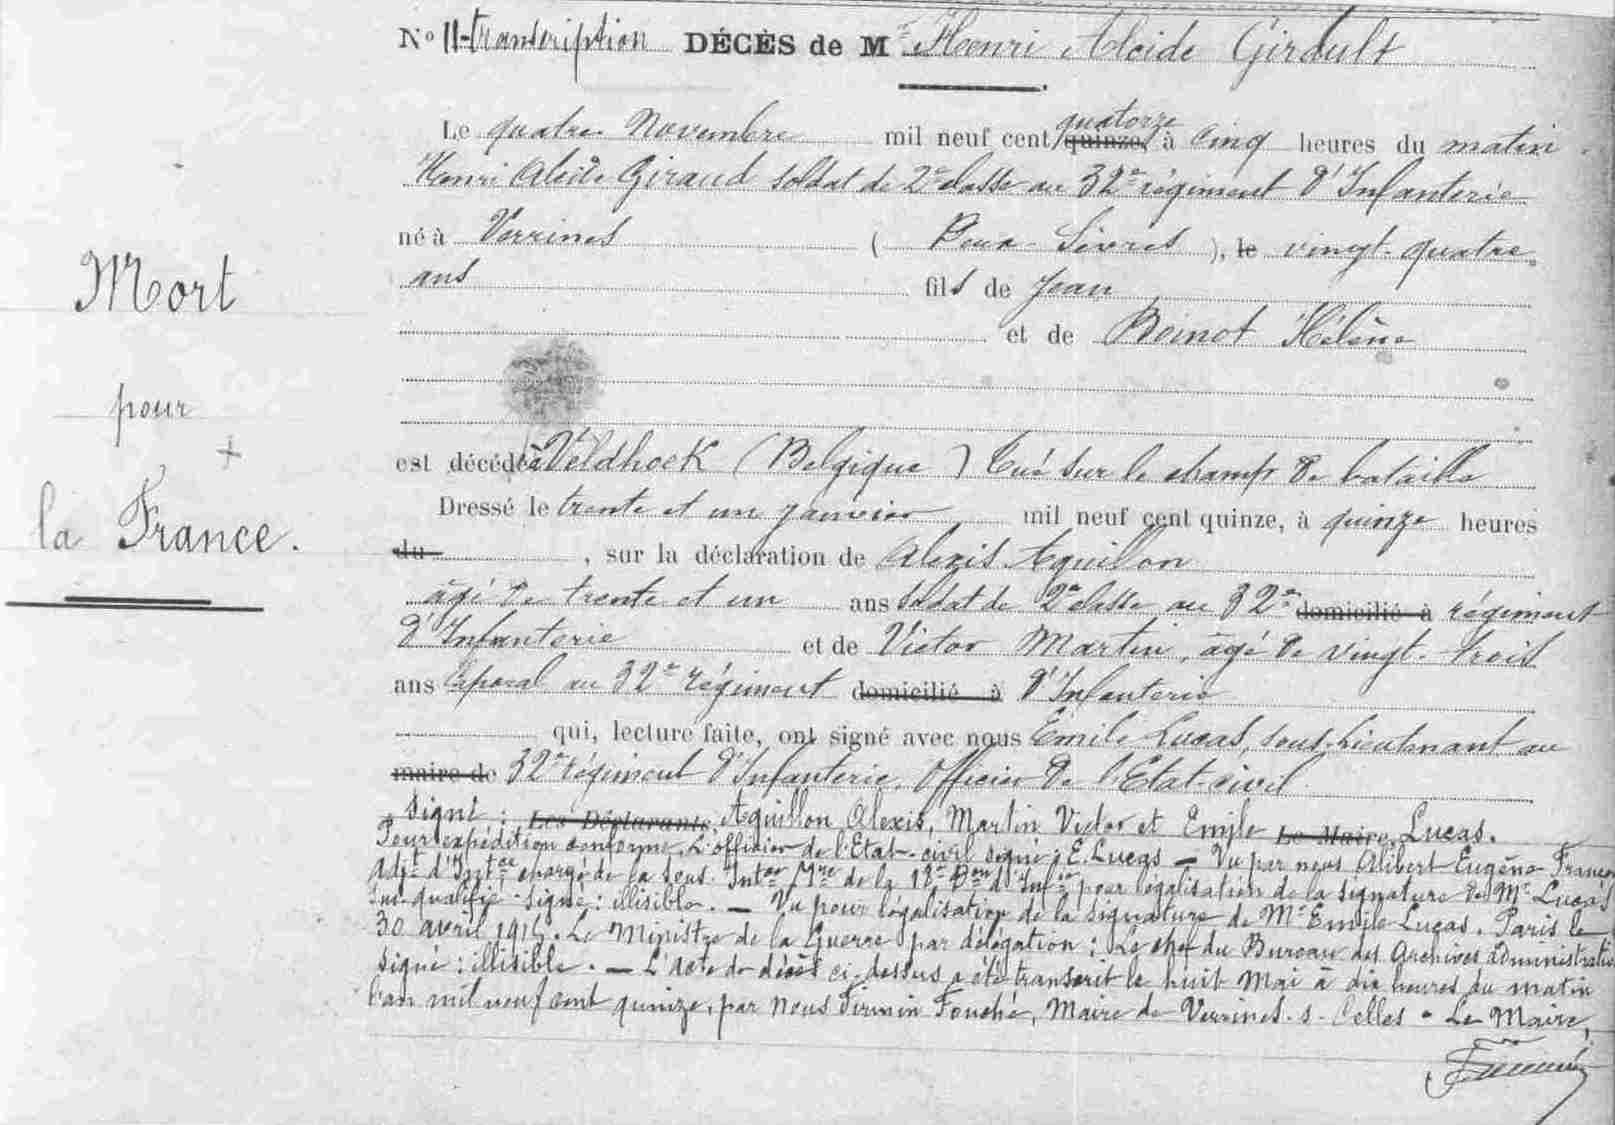 Nº 11-transcription DÉCÈS de Mr Henri Alcide Girault
Le quatre Novembre mil neuf cent quatorze quinze, à cinq heures du matin.
Henri Alcide Giraud soldat de 2e classe au 32e régiment d'Infanterie
né à Verrines ( Deux-Sèvres ), le vingt-quatre
ans fils de Jean
et de Boinot Hélène
Mort
pour
la France.
est décédé à Veldhoek (Belgique) tué sur le champ de bataille
Dressé le trente et un janvier mil neuf cent quinze, à quinze heures
du , sur la déclaration de Alexis Aquillon
âgé de trente et un ans soldat de 2e classe au 32e domicilié à régiment
d'Infanterie et de Victor Martin, âgé de vingt-trois
ans Caporal au 32e régiment domicilié à d'Infanterie
qui, lecture faite, ont signé avec nous Emile Lucas, sous-Lieutenant au
maire de 32e régiment d'Infanterie, Officier de l'Etat-civil
Signé : Les Déclarants, Aquillon Alexis, Martin Victor et Emile Le Maire, Lucas.
Pour expédition conforme. L'officier de l'Etat-civil signé : E. Lucas — Vu par nous Alibert Eugène Franço
Adjt d'Intce chargé de la Sous-Intce Mre de la 18e Don d'Infie pour légalisation de la signature de Mr Lucas
sus-qualifié - signé : illisible. — Vu pour légalisation de la signature de Mr Emile Lucas. Paris le
30 avril 1915. Le Ministre de la Guerre par délégation : Le chef du Bureau des Archives administrati
signé : illisible. — L'acte de décès ci-dessus a été transcrit le huit Mai à dix heures du matin
l'an mil neuf cent quinze, par nous Firmin Fouché, Maire de Verrines-s-Celles - Le Maire,